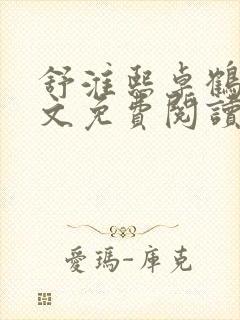 舒淮熙卓鶴
文免費閱讀
愛瑪-庫克